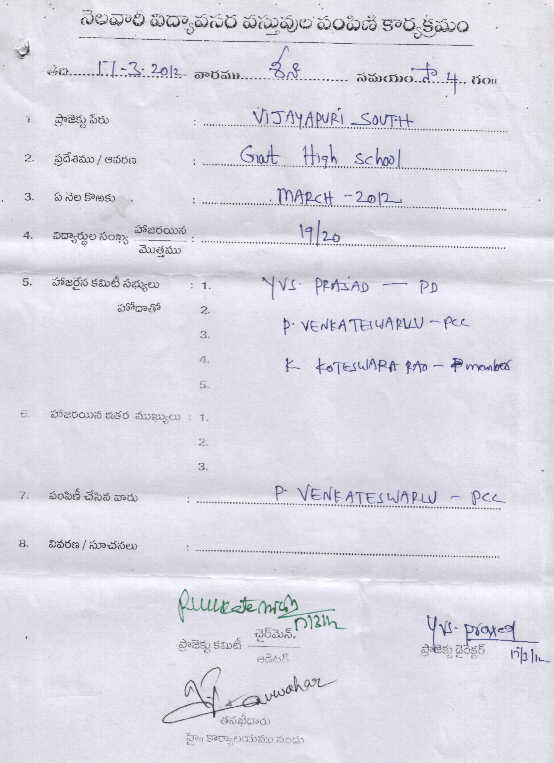 నెలవారీ విద్యావసర వస్తువుల పంపిణీ కార్యక్రమం
తేది 17-3-2012 వారము శని సమయం సా 4 గం॥
1. ప్రాజెక్టు పేరు : VIJAYAPURI SOUTH
2. ప్రదేశము / ఆవరణ : Govt High School
3. ఏ నెల కొఱకు : MARCH - 2012
4. విద్యార్థుల సంఖ్య హాజరయిన / మొత్తము : 19/20
5. హాజరైన కమిటీ సభ్యులు : 1. YVS. PRASAD — PD
హోదాతో 2. P. VENKATESWARLU - PCC
3. K KOTESWARA RAO - member
4.
5.
6. హాజరయిన ఇతర ముఖ్యులు : 1.
2.
3.
7. పంపిణీ చేసిన వారు : P. VENKATESWARLU - PCC
8. వివరణ / సూచనలు :
17/3/12
YVS. Prasad
ప్రాజెక్టు కమిటీ ఛైర్మెన్. / ఆడిటర్
ప్రాజెక్టు డైరెక్టర్ 17/3/12
తనఖీదారు
హై॥ కార్యాలయము నందు